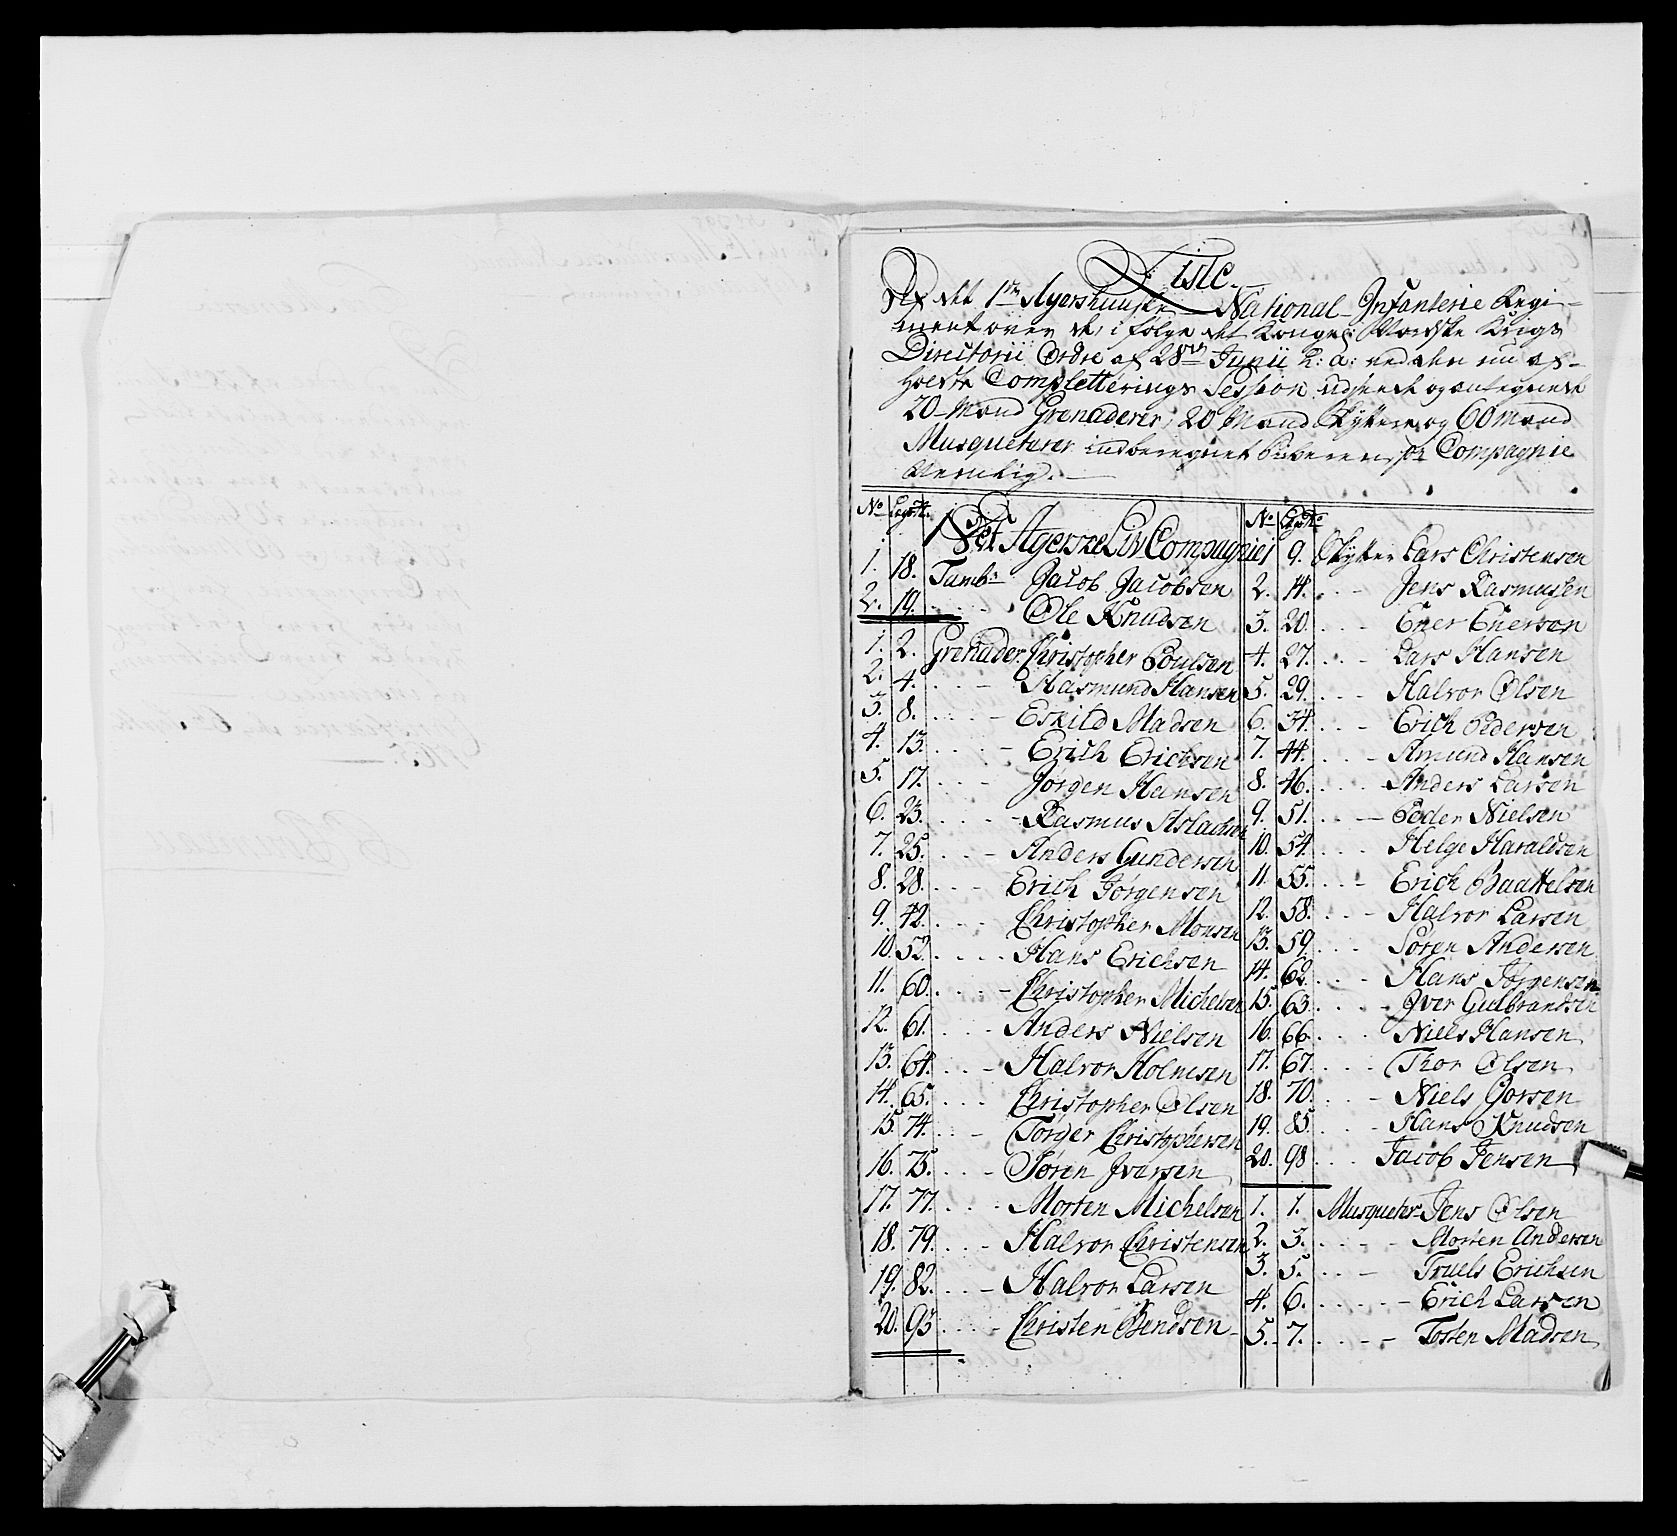 Liste
Ved det 1ste Agershuuske National Infanterie Regi-
ment over de, i følge det Kongel: Norske Krigs
Directorii Ordre af 28de Junii h: a: ved den nu af-
holdte Completterings Session udseede og antegnede
20 Mand Grenaderer, 20 Mand Skyttere og 60 Mand
Musqueterer indberegnet Piberen for Compagnie
Nemlig.
No Legds No
Det Agerske Liv Compagnie
1. 18. Tamb: Jacob Jacobsen
2. 19. Ole Knudsen
1. 2. Grenader Christopher Poulsen
2. 4. Rasmund Hansen
3. 8. Eskild Madsen
4. 13. Erich Erichsen
5. 17. Jørgen Hansen
6. 23. Rasmus Aslachsen
7. 25. Anders Gundersen
8. 28. Erich Jørgensen
9. 42. Christopher Monsen
10. 52. Hans Erichsen
11. 60. Christopher Michelsen
12. 61. Anders Nielsen
13. 64. Halvor Holmsen
14. 65. Christopher Olsen
15. 74. Torger Christophersen
16. 75. Søren Iversen
17. 77. Morten Michelsen
18. 79. Halvor Christensen
19. 82. Halvor Larsen
20. 93 Christen Bendsen
No Legds No
1 9. Skytter Lars Christensen
2. 14. Jens Rasmusen
3. 20. Ener Enersen
4. 27. Lars Hansen
5. 29. Halvor Olsen
6. 34. Erich Pedersen
7. 44. Amund Hansen
8. 46. Anders Larsen
9. 51. Peder Nielsen
10. 54. Helge Haraldsen
11. 55. Erich Baattelsen
12. 58. Halvor Larsen
13. 59. Søren Andersen
14. 62. Hans Jørgensen
15. 63. Iver Gulbrandsen
16. 66. Niels Hansen
17. 67. Thor Olsen
18. 70. Niels Gorsen
19. 85. Hans Knudsen
20. 98 Jacob Jensen
1. 1. Musqueter Jens Olsen
2. 3. Morten Andersen
3. 5. Truels Erichsen
4. 6. Erich Larsen
5. 7. Tosten Madsen